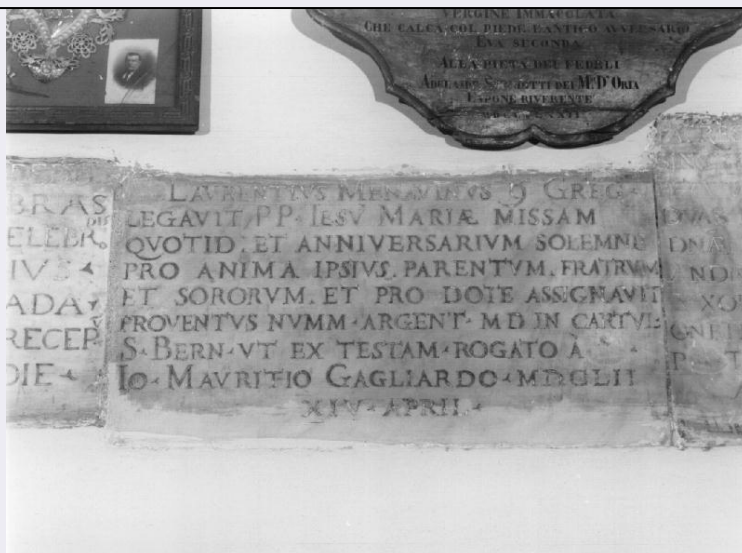 VERGINE IMMACOLATA
CHE CALCA COL PIEDE L'ANTICO AVVERSARIO
EVA SECONDA
ALLA PIETA DEI FEDELI
ADELAIDE DEI M. D'ORIA
ESPONE RIVERENTE
BRAS
ELEBR.
IVS
ADA
RECEP
DIE
LAVRENTIVS 9 GREG
LEGAVIT PP. IESV MARIÆ MISSAM
QVOTID. ET ANNIVERSARIVM SOLEMNE
PRO ANIMA IPSIVS. PARENTVM. FRATRVM
ET SORORVM. ET PRO DOTE ASSIGNAVIT
PROVENTVS NVMM. ARGENT. M D IN CARTVL
S. BERN. VT EX TESTAM. ROGATO A
IO. MAVRITIO GAGLIARDO. MDCLII
XIV. APRIL.
DVAS
DNA
NDI
XO